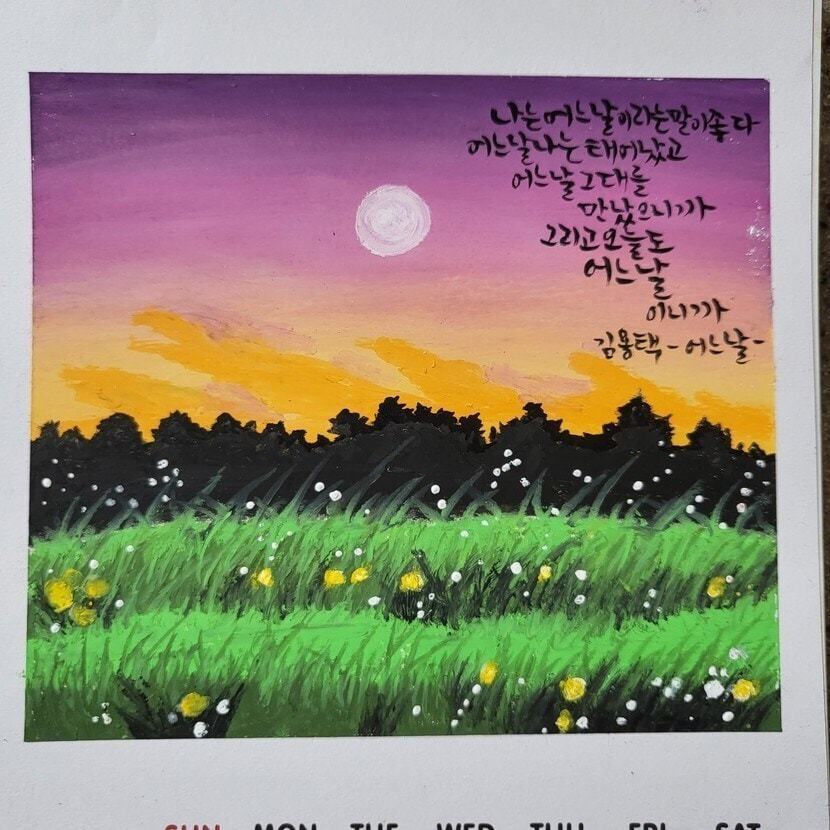 나는 어느날이라는 말이 좋다
어느날 나는 태어났고
어느날 그대를
만났으니까
그리고 오늘도
어느날
이니까
김용택 - 어느날 -
SUN MON TUE WED THU FRI SAT